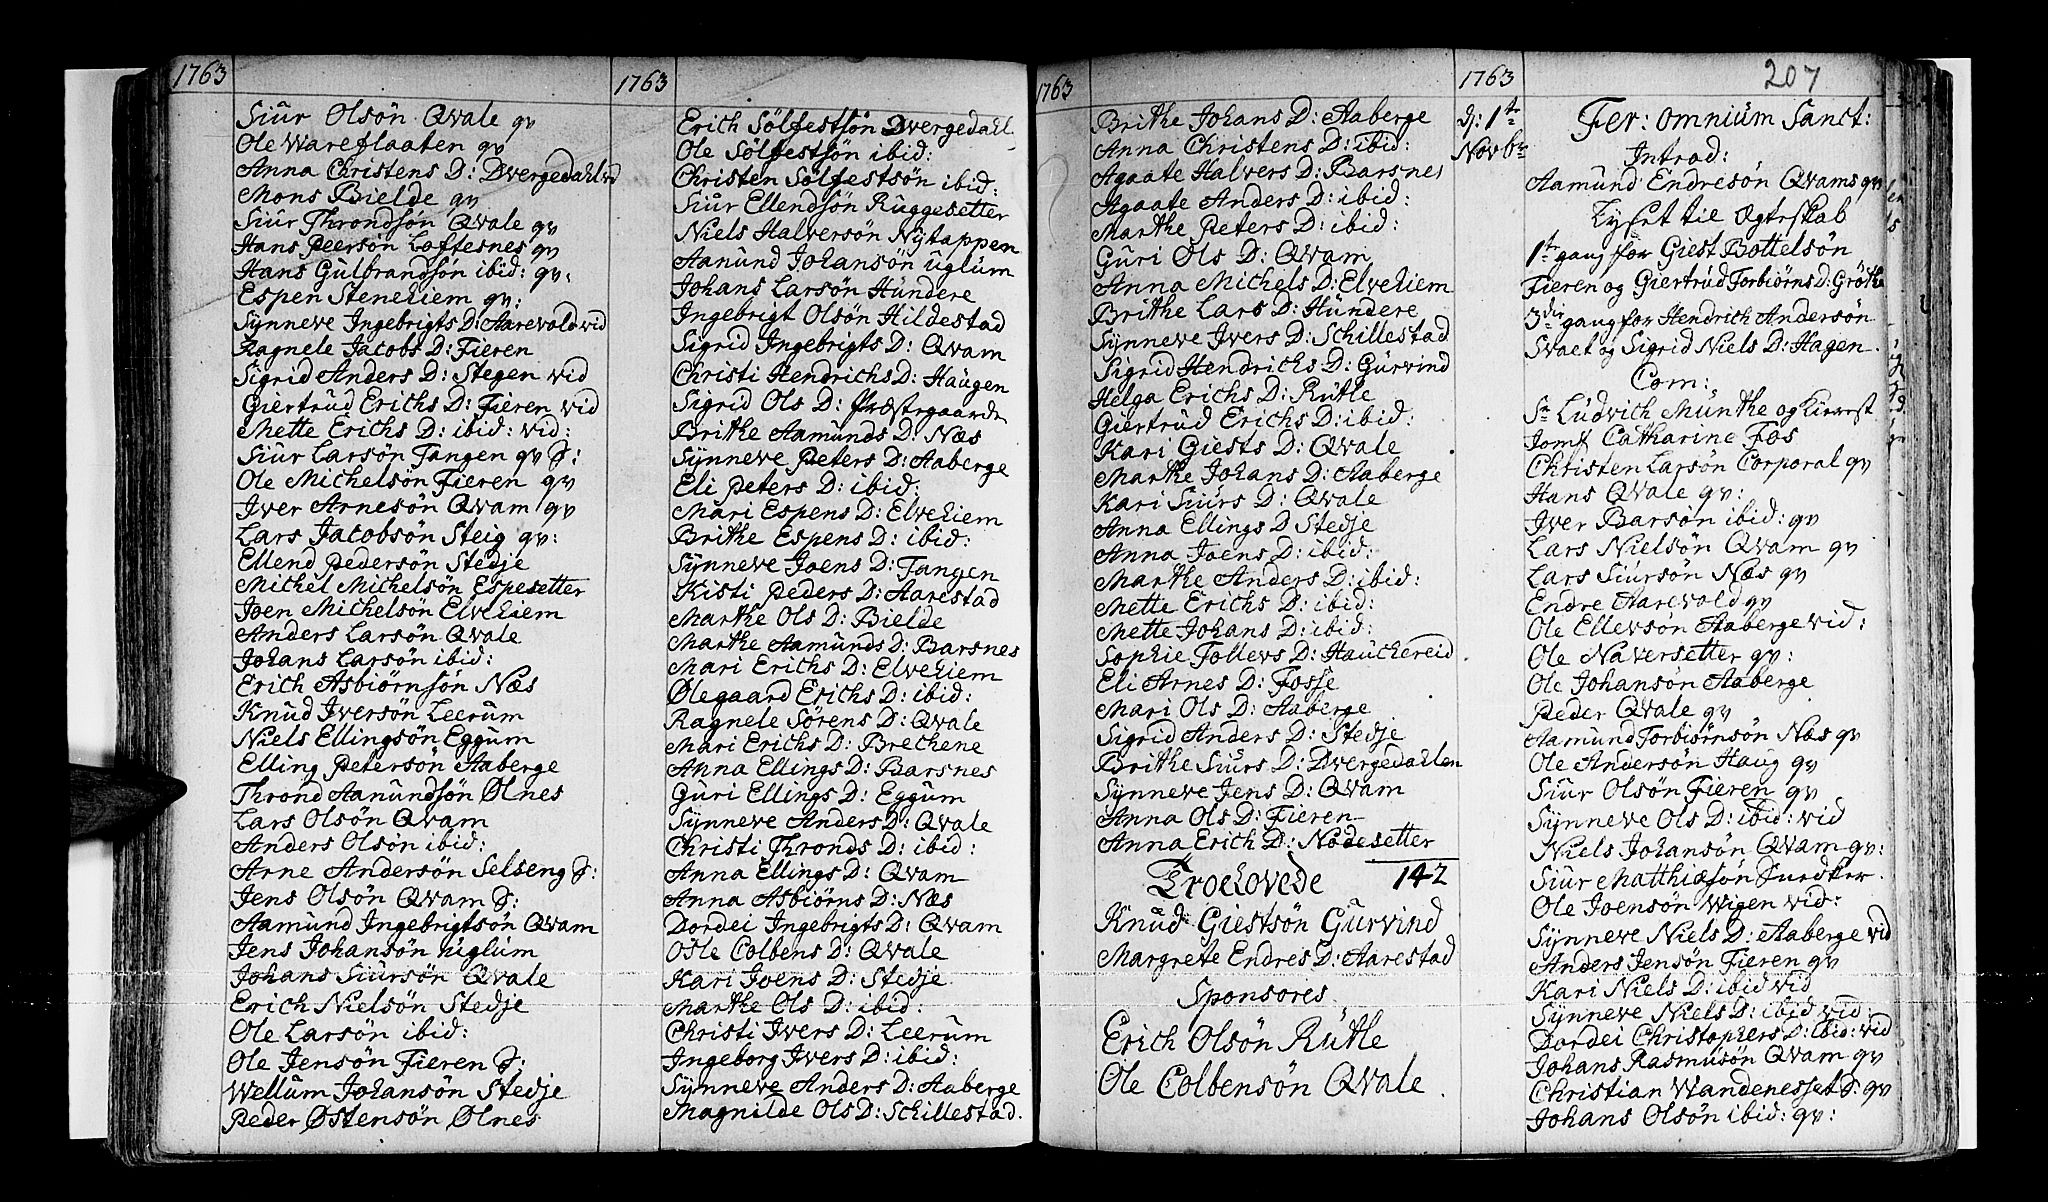 1763
Siur Olsön Qvale qv
Ole Wareflaaten qv
Anna Christens D: Dvergedahl vid
Mons Bielde qv
Siur Throndsön Qvale qv
Hans Peersön Loftesnes qv
Hans Gulbrandsön ibid: qv:
Espen Stenehiem qv:
Synneve Ingebrigts D: Aarevold vid
Ragnele Jacobs D: Fieren
Sigrid Anders D: Stegen vid
Giertrud Erichs D: Fieren vid
Mette Erichs D: ibid: vid:
Siur Larsön Tangen qv S:
Ole Michelsön Fieren qv
Iver Arnesön Qvam qv
Lars Jacobsön Steig qv:
Ellend Pedersön Stedje
Michel Michelsön Espesetter
Joen Michelsön Elvehiem
Anders Larsön Qvale
Johans Larsön ibid:
Erich Asbiörnsön Næs
Knud Iversön Leerum
Niels Ellingsön Eggum
Elling Petersön Aaberge
Thrond Aamundsön Ølnes
Lars Olsön Qvam
Anders Olsön ibid:
Arne Andersön Selseng S:
Jens Olsön Qvam S:
Aamund Ingebrigtsön Qvam
Jens Johansön Uglum
Johans Siursön Qvale
Erich Nielsön Stedje
Ole Larsön ibid:
Ole Jensön Fieren S:
Wellum Johansön Stedje
Peder Østensön Ølnes
1763
Erich Sölfestsön Dvergedahl
Ole Sölfestsön ibid:
Christen Sölfestsön ibid:
Siur Ellendsön Ruggesetter
Niels Halversön Nytappen
Aamund Johansön Uglum
Johans Larsön Hundere
Ingebrigt Olsön Hildestad
Sigrid Ingebrigts D: Qvam
Christi Hendrichs D: Haugen
Sigrid Ols D: Præstegaarde
Brithe Aamunds D: Næs
Synneve Peters D: Aaberge
Eli Peters D: ibid:
Mari Espens D: Elvehiem
Brithe Espens D: ibid:
Synneve Joens D: Tangen
Kisti Peders D: Aarestad
Marthe Ols D: Bielde
Marthe Aamunds D: Barsnes
Mari Erichs D: Elvehiem
Ølegaard Erichs D: ibid:
Ragnele Sörens D: Qvale
Mari Erichs D: Brechene
Anna Ellings D: Barsnes
Guri Ellings D: Eggum
Synneve Anders D: Qvale
Christi Thronds D: ibid:
Anna Ellings D: Qvam
Anna Asbiörns D: Næs
Dordei Ingebrigts D: Qvam
Osle Colbens D: Qvale
Kari Joens D: Stedje
Marthe Ols D: ibid:
Christi Ivers D: Leerum
Ingeborg Ivers D: ibid:
Synneve Anders D: Aaberge
Magnilde Ols D: Schillestad.
1763
Brithe Johans D: Aaberge
Anna Christens D: ibid:
Agaate Halvers D: Barsnes
Agaate Anders D: ibid:
Marthe Peters D: ibid:
Guri Ols D: Qvam
Anna Michels D: Elvehiem
Brithe Lars D: Hundere
Synneve Ivers D: Schillestad
Sigrid Hendrichs D: Gurvind
Helga Erichs D: Rutle
Giertrud Erichs D: ibid:
Kari Giests D: Qvale
Marthe Johans D: Aaberge
Kari Siurs D: Qvale
Anna Ellings D Stedje
Anna Joens D: ibid:
Marthe Anders D: ibid:
Mette Erichs D: ibid:
Mette Johans D: ibid:
Sophie Tollevs D: Hauchereid
Eli Arnes D: Fosse
Mari Ols D: Aaberge
Sigrid Anders D: Stedje
Brithe Siurs D: Dvergedahlen
Synneve Jens D: Qvam
Anna Ols D: Fieren
Anna Erich D: Nodesetter
Trochovede 142
Knud Giestsön Gurvind
Margrete Endres D: Aarestad
Sponsores.
Erich Olsön Rutle
Ole Colbensön Qvale.
1763 207
D: 1te Novbr
Fer: omnium Sanct:
Introd:
Aamund Endresön Qvams qv
Lyset til Ægteskab
1te gang for Giest Bottelsön
Fieren og Giertrud Torbiörns D: Gröthe
3die gang for Hendrich Andersön
Svaet og Sigrid Niels D: Hagen
Com:
Sr Ludvich Munthe og Kierest
Jomf Catharine Fos
Christen Larsön Corporal qv
Hans Qvale qv:
Iver Barsön ibid: qv
Lars Nielsön Qvam qv
Lars Siursön Næs qv
Endre Aarevold qv
Ole Ellevsön Aaberge vid:
Ole Naversetter qv:
Ole Johansön Aaberge
Peder Qvale qv
Aamund Torbiörnsön Næs qv
Ole Andersön Haug qv
Siur Olsön Fieren qv
Synneve Ols D: ibid: vid
Niels Johansön Qvam qv:
Siur Matthiæsön Snedker
Ole Joensön Wigen vid:
Synneve Niels D: Aaberge vid
Anders Jensön Fieren qv
Kari Niels D: ibid vid
Synneve Niels D: ibid vid:
Dordei Christophers D: ibid: vid
Johans Rasmusön Qvam qv
Christian Wandenesset S: qv
Johans Olsön ibid: qv: